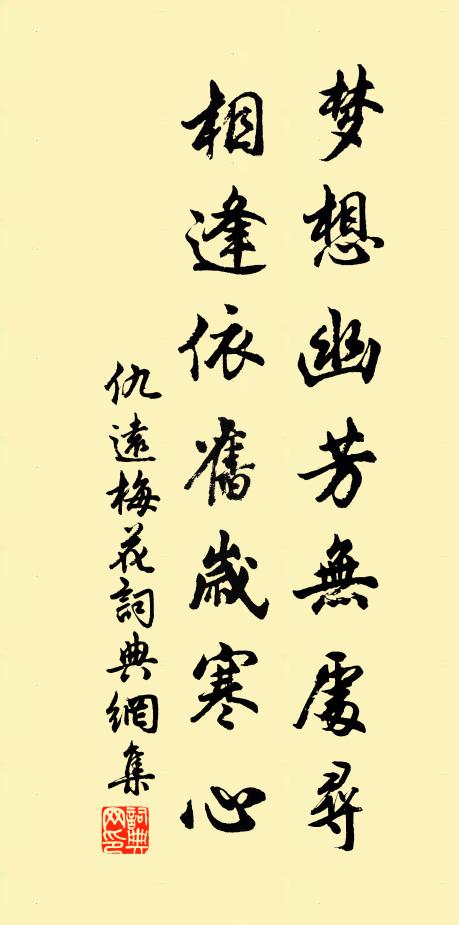 梦想幽芳無處尋
相逢依舊歲寒心
仇遠梅花詞典網集
詞典網印